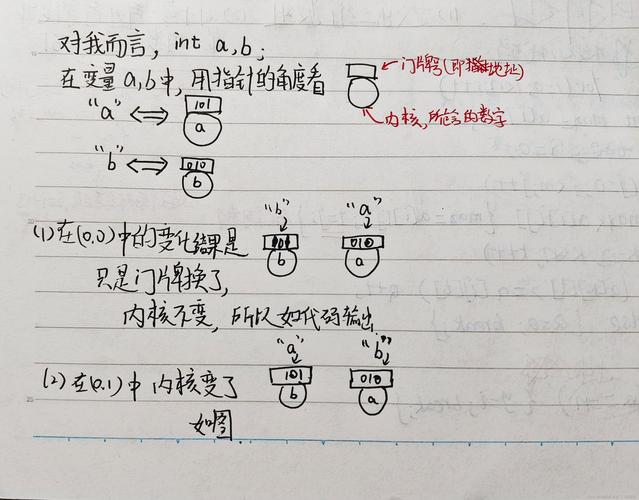 对我而言，int a,b;
在变量a,b中，用指针的角度看
←门牌号(即指针地址)
内核，所含的数字
"a" ⟺ 101 a
"b" ⟺ 010 b
"b" "a"
(1)在(0,0)中的变化结果是 101 b 010 a
只是门牌换了，
内核不变，所以如代码输出
"a" "b"
(2)在(0,1)中 内核变了 101 b 010 a
如图